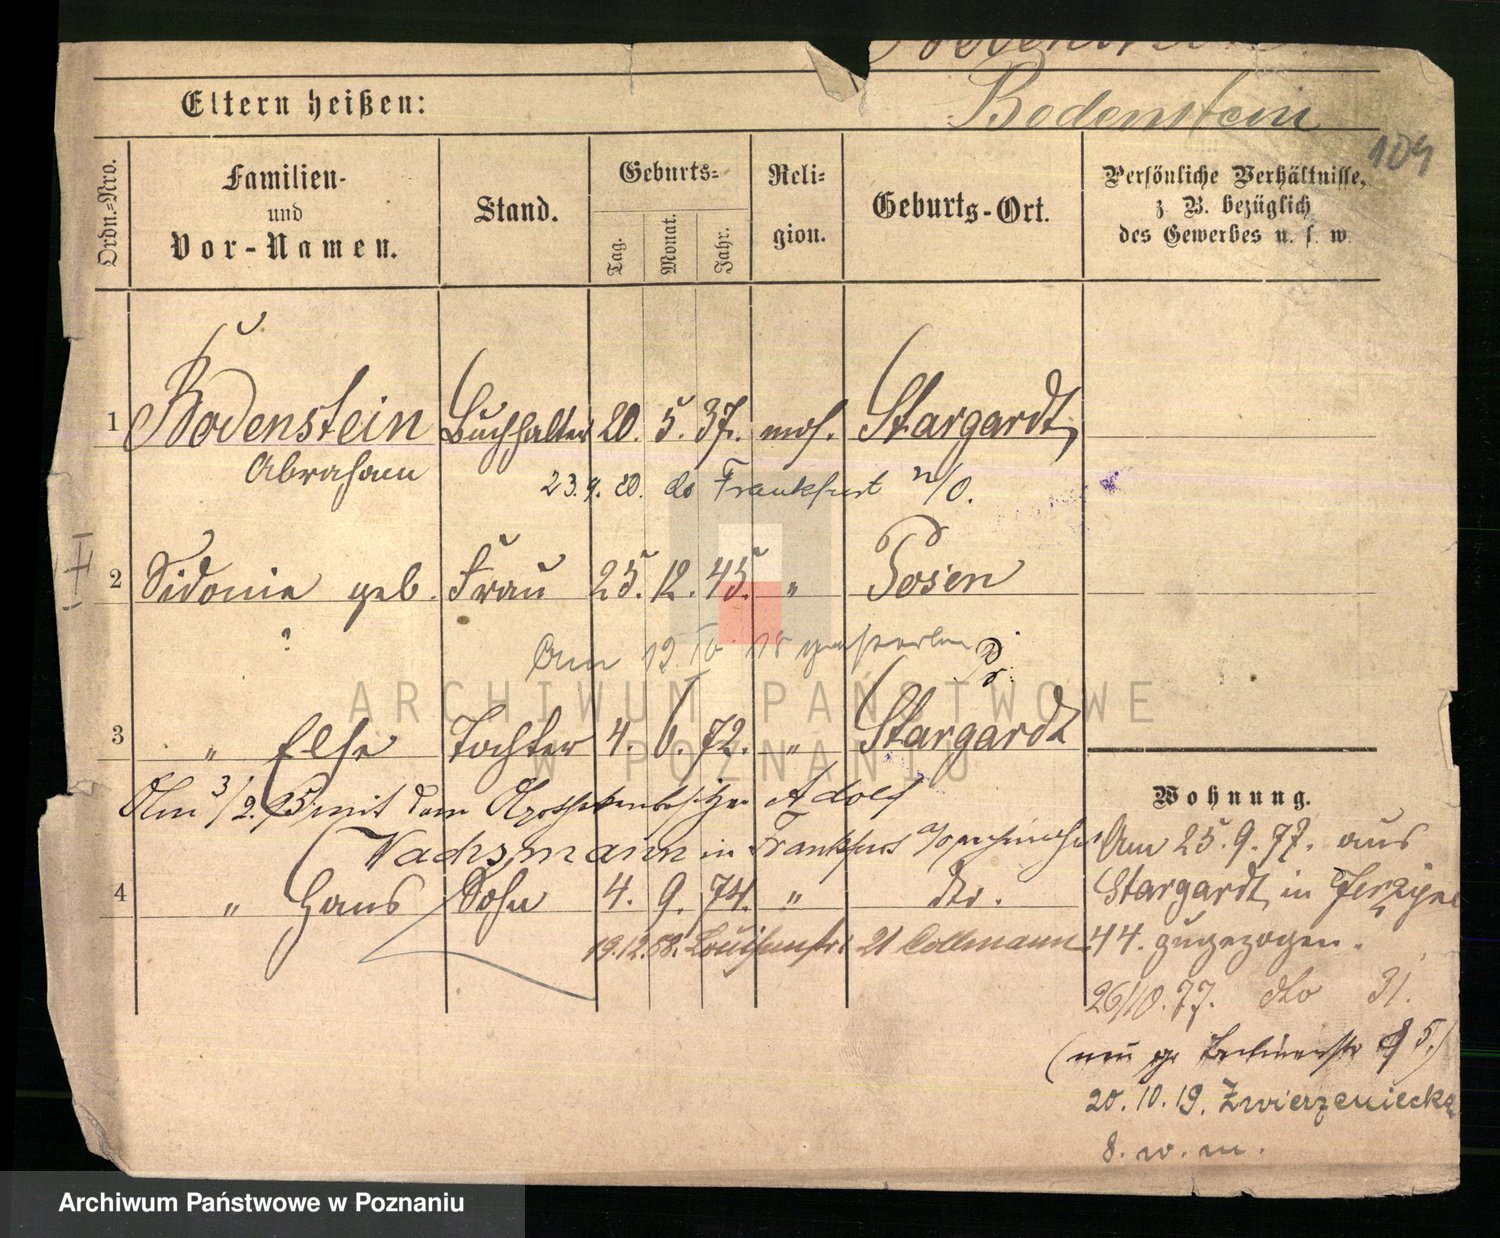 Bodenstein
Eltern heißen:
104
Ordn.-Nro.
Familien-
und
Vor-Namen.
Stand.
Geburts-
Tag.
Monat.
Jahr.
Reli-
gion.
Geburts-Ort.
Persönliche Verhältnisse,
z B. bezüglich
des Gewerbes u. s. w.
1 Bodenstein Buchhalter 20. 5. 37. mos. Stargardt
Abraham
23. 9. 20. do Frankfurt n/O.
II
2 Sidonie geb. Frau 25. 12. 45. " Posen
?
Am 12. 10 18 gestorben
3 " Else Tochter 4. 6. 72. " Stargardt
Am 3/2. 95 mit dem Apothekenbesitzer Adolf
Wachsmann in Frankfurt a/O
4 " Hans Sohn 4. 9. 74. " dto.
19.12.58. Louisenstr. 21 Collmann
Wohnung.
Am 25. 9. 77. aus
Stargardt in Jerzyce
44. zugezogen.
26/10. 77. dto 31.
(nun gr Berlinerstr 5.)
20. 10. 19. Zwierzeniecka
8. w. m.
ARCHIWUM PAŃSTWOWE
W POZNANIU
Archiwum Państwowe w Poznaniu